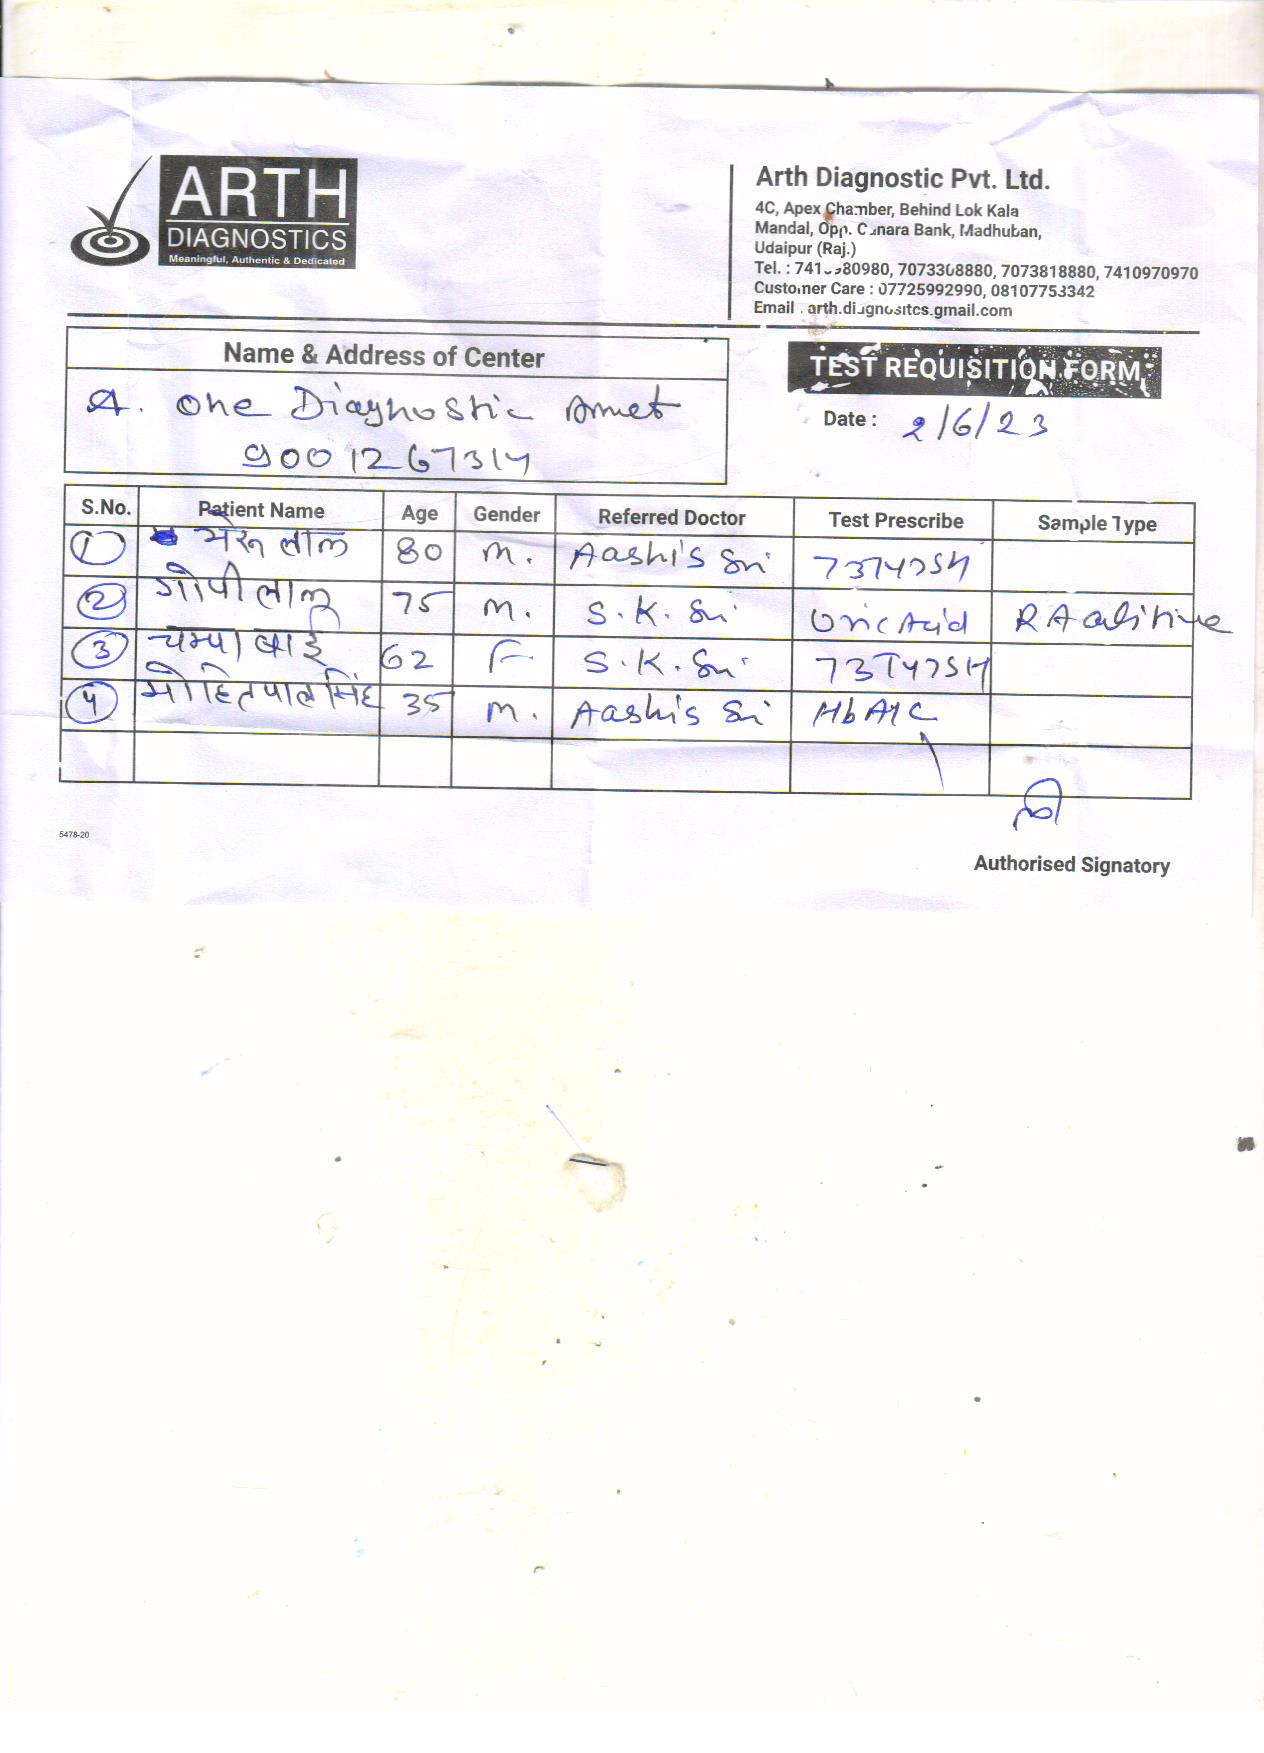 ARTH
DIAGNOSTICS
Meaningful, Authentic & Dedicated
Arth Diagnostic Pvt. Ltd.
4C, Apex Chamber, Behind Lok Kala
Mandal, Opp. Canara Bank, Madhuban,
Udaipur (Raj.)
Tel. : 7073308880, 7073818880, 7410970970
Customer Care : 07725992990, 08107753342
Email . arth.diagnositcs.gmail.com
Name & Address of Center
A. One Diagnostic Amet
9001267314
TEST REQUISITION FORM
Date : 2/6/23
S.No. Patient Name Age Gender Referred Doctor Test Prescribe Sample Type
1 भेरू लाल 80 M. Aashi's Sir T3T4TSH
2 गोपी लाल 75 M. S.K. Sir Uric Acid RA
3 चम्पा बाई 62 F S.K. Sir T3T4TSH
4 मोहित पाल सिंह 35 M. Aashi's Sir HbA1C
5478-20
Authorised Signatory